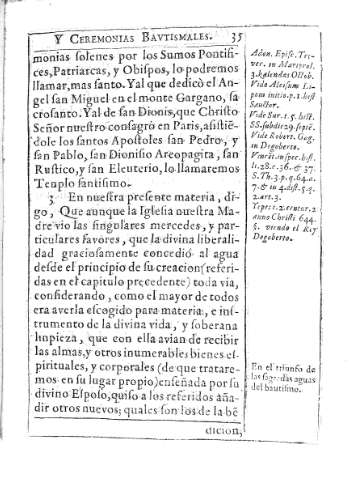 Y CEREMONIAS BAVTISMALES. 35
monias solenes por los Sumos Pontifi-
ces, Patriarcas, y Obispos, lo podremos
llamar, mas santo. Y al que dedicò el An-
gel san Miguel en el monte Gargano, sa
crosanto. Y al de san Dionis, que Christo
Señor nuestro consagrò en Paris, asistiē-
dole los santos Apostoles san Pedro, y
san Pablo, san Dionisio Areopagita, san
Rustico, y san Eleuterio, lo llamaremos
Templo santisimo.
3 En nuestra presente materia, di-
go, Que aunque la Iglesia nuestra Ma-
dre vio las singulares mercedes, y par-
ticulares favores, que la divina liberali-
dad graciosamente concediò al agua
desde el principio de su creacion (referi-
das en el capitulo precedente) toda via,
considerando, como el mayor de todos
era averla escogido para materia, e ins-
trumento de la divina vida, y soberana
limpieza, que con ella avian de recibir
las almas, y otros innumerables bienes es-
pirituales, y corporales (de que tratare-
mos en su lugar propio) enseñada por su
divino Esposo, quiso a los referidos aña-
dir otros nuevos; quales son los de la bē
dicion,
Adon. Episc. Tre-
ver. in Martyrol.
3. kalendas Octob.
Vide
initio. p. 1. hist
Vide Sur. 1. 5. hist
SS. sub die 29. sptē.
Vide Robert. Gag.
in Dagoberto.
Vincēt. in spec. hist.
l. 28. c. 36. & 37.
S. Th. 3. p. q. 64. a.
7. & in 4. dist. 5. q.
2. ar. 3.
2
anno Christi 644
5. viendo el Rey
Dagoberto.
En el triunfo de
las sagradas aguas
del bautismo.